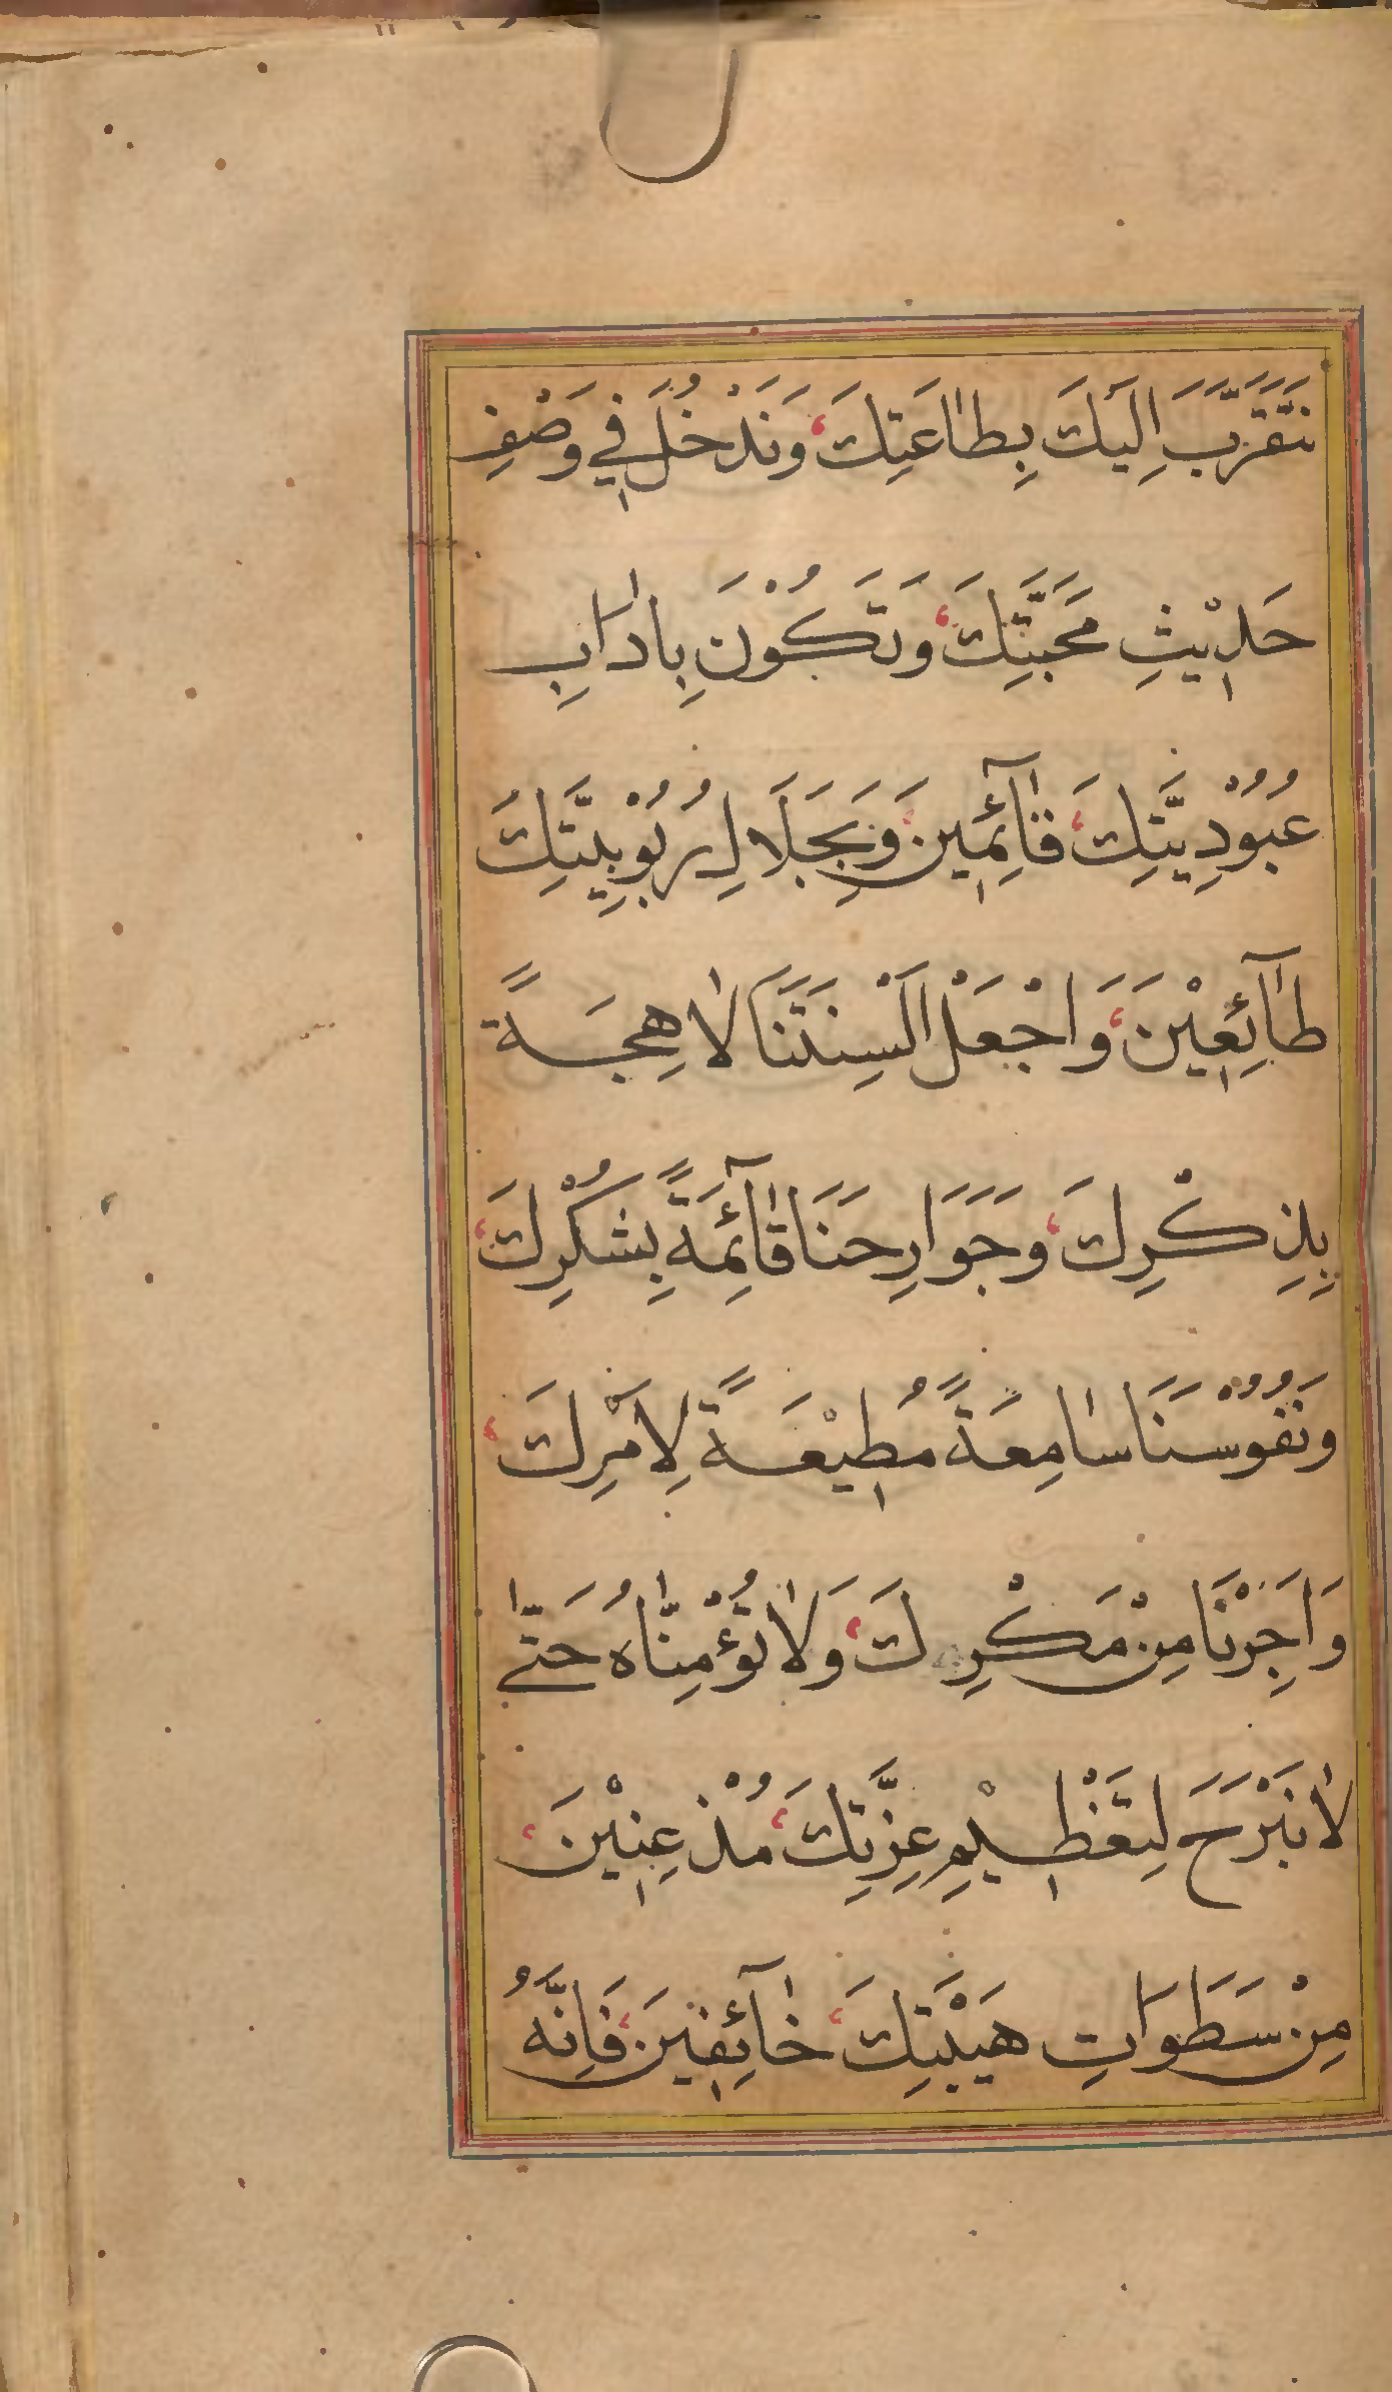 نَتَقَرَّبَ اِلَيْكَ بِطَاعَتِكَ، وَنَدْخُلَ فِي وَصْفِ
حَدِيْثِ مَحَبَّتِكَ، وَنَكُوْنَ بِاٰدَابِ
عُبُوْدِيَّتِكَ، قَآئِمِيْنَ، وَبِجَلَالِ رُبُوْبِيَّتِكَ
طَآئِعِيْنَ، وَاجْعَلْ اَلْسِنَتَنَا لَاهِجَةً
بِذِكْرِكَ، وَجَوَارِحَنَا قَآئِمَةً بِشُكْرِكَ،
وَنُفُوْسَنَا سَامِعَةً مُطِيْعَةً لِاَمْرِكَ،
وَاَجِرْنَا مِنْ مَكْرِكَ، وَلَا تُؤْمِنَّاهُ حَتّٰى
لَا نَبْرَحَ لِتَعْظِيْمِ عِزَّتِكَ، مُذْعِنِيْنَ،
مِنْ سَطَوَاتِ هَيْبَتِكَ، خَآئِفِيْنَ، فَاِنَّهُ